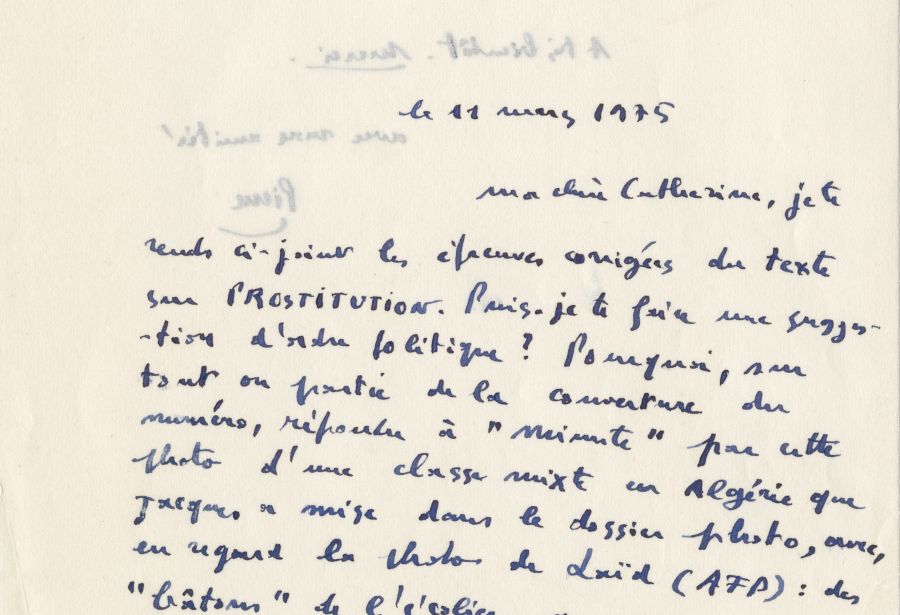 le 11 mars 1975
ma chère Catherine, je te
rends ci-joint les épreuves corrigées du texte
sur PROSTITUTION. Puis-je te faire une sugges-
-tion d'ordre politique ? Pourquoi, sur
tout ou partie de la couverture du
numéro, répondre à "Minute" par cette
photo d'une classe mixte en Algérie que
Jacques a mise dans le dossier photo, avec,
en regard la photo de Laïd (AFP) : des
"bâtons" de l'écolier
A très bientôt. Merci.
avec mon amitié
Pierre